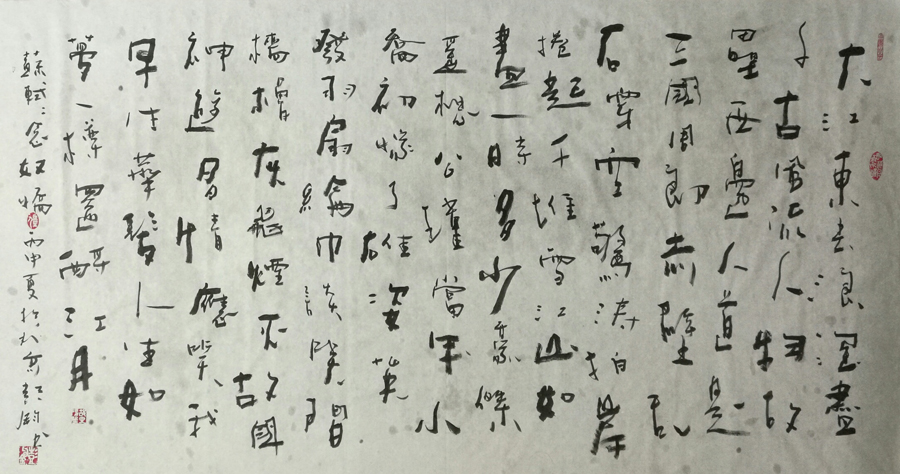 大江東去浪淘盡
千古風流人物故
壘西邊人道是
三國周郎赤壁乱
石穿空驚濤拍岸
捲起千堆雪江山如
畫一時多少豪傑
遥想公瑾當年小
喬初嫁了雄姿英
發羽扇綸巾談笑間
檣櫓灰飛煙灭故國
神遊多情應笑我
早生華髮人生如
夢一樽還酹江月
蘇軾念奴嬌丙申夏於鈞书